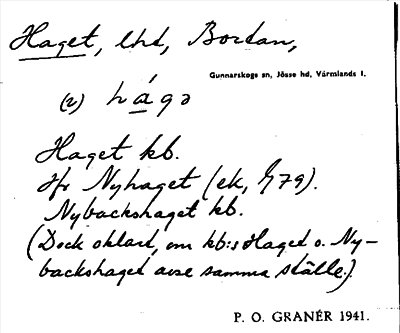 Haget, lhd, Bordan,
Gunnarskogs sn, Jösse hd, Värmlands l.
(2) hágə
Haget kb.
Jfr Nyhaget (ek, §79).
Nybackshaget kb.
(Dock oklart, om kb:s Haget o. Ny-
backshaget avse samma ställe.)
P. O. GRANÉR 1941.